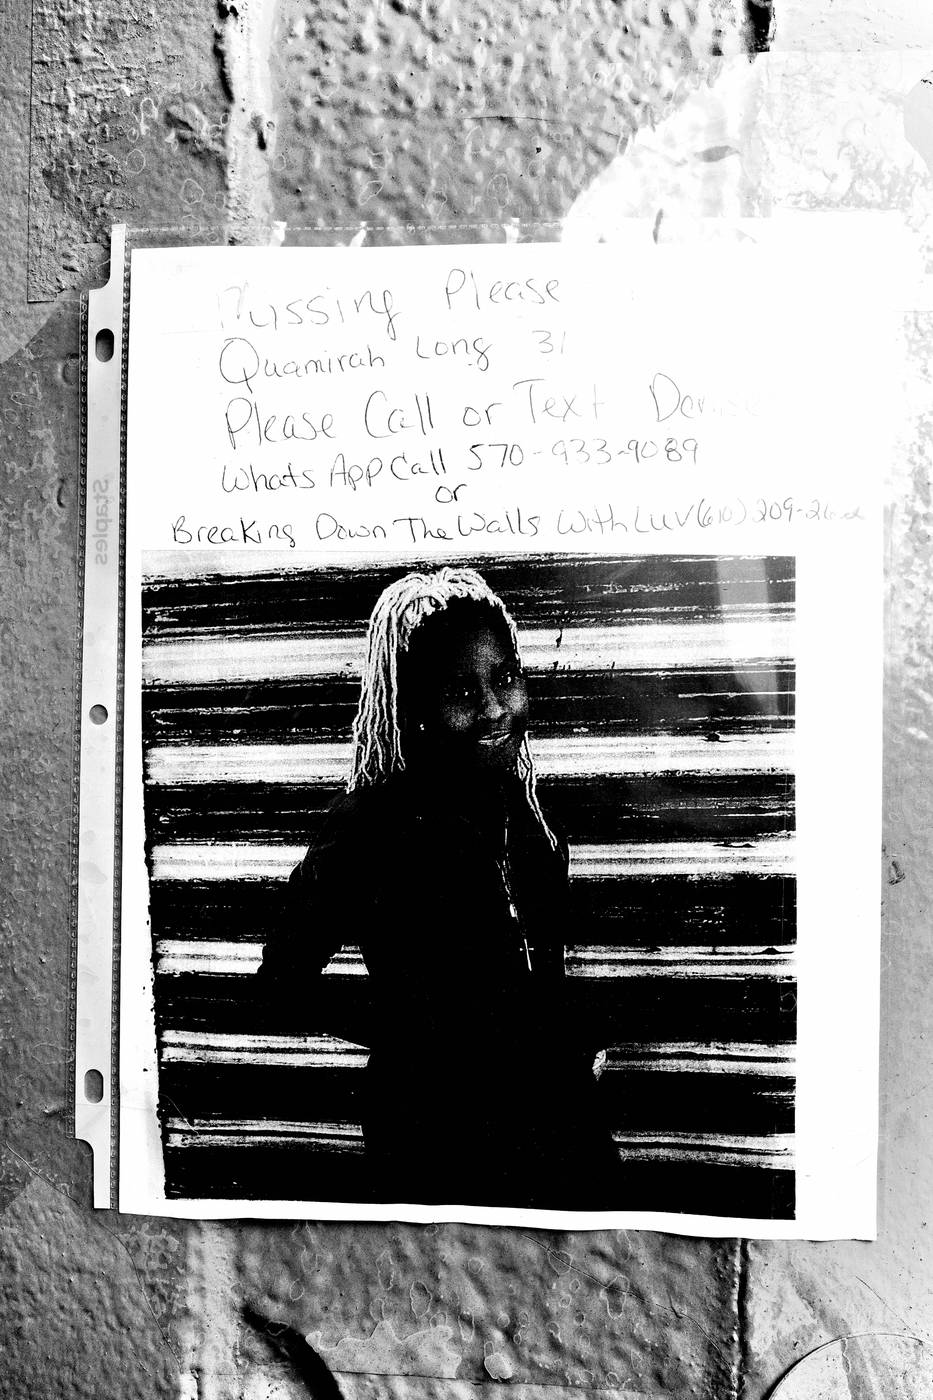 Missing Please
Quamirah Long 31
Please Call or Text Denise
Whats App Call 570-933-9089
or
Breaking Down The Walls With LUV (610) 209-
Staples